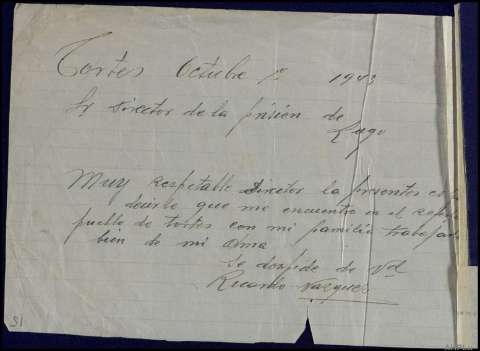 Tortes Octubre 1º 1943
Sr Director de la prisión de
Lugo
Muy respetable Director la presentes es pa
decirle que me encuentro en el
pueblo de tortes con mi familia trabajando
bien de mi alma
Se despide de Vd
Ricardo Vazquez
31